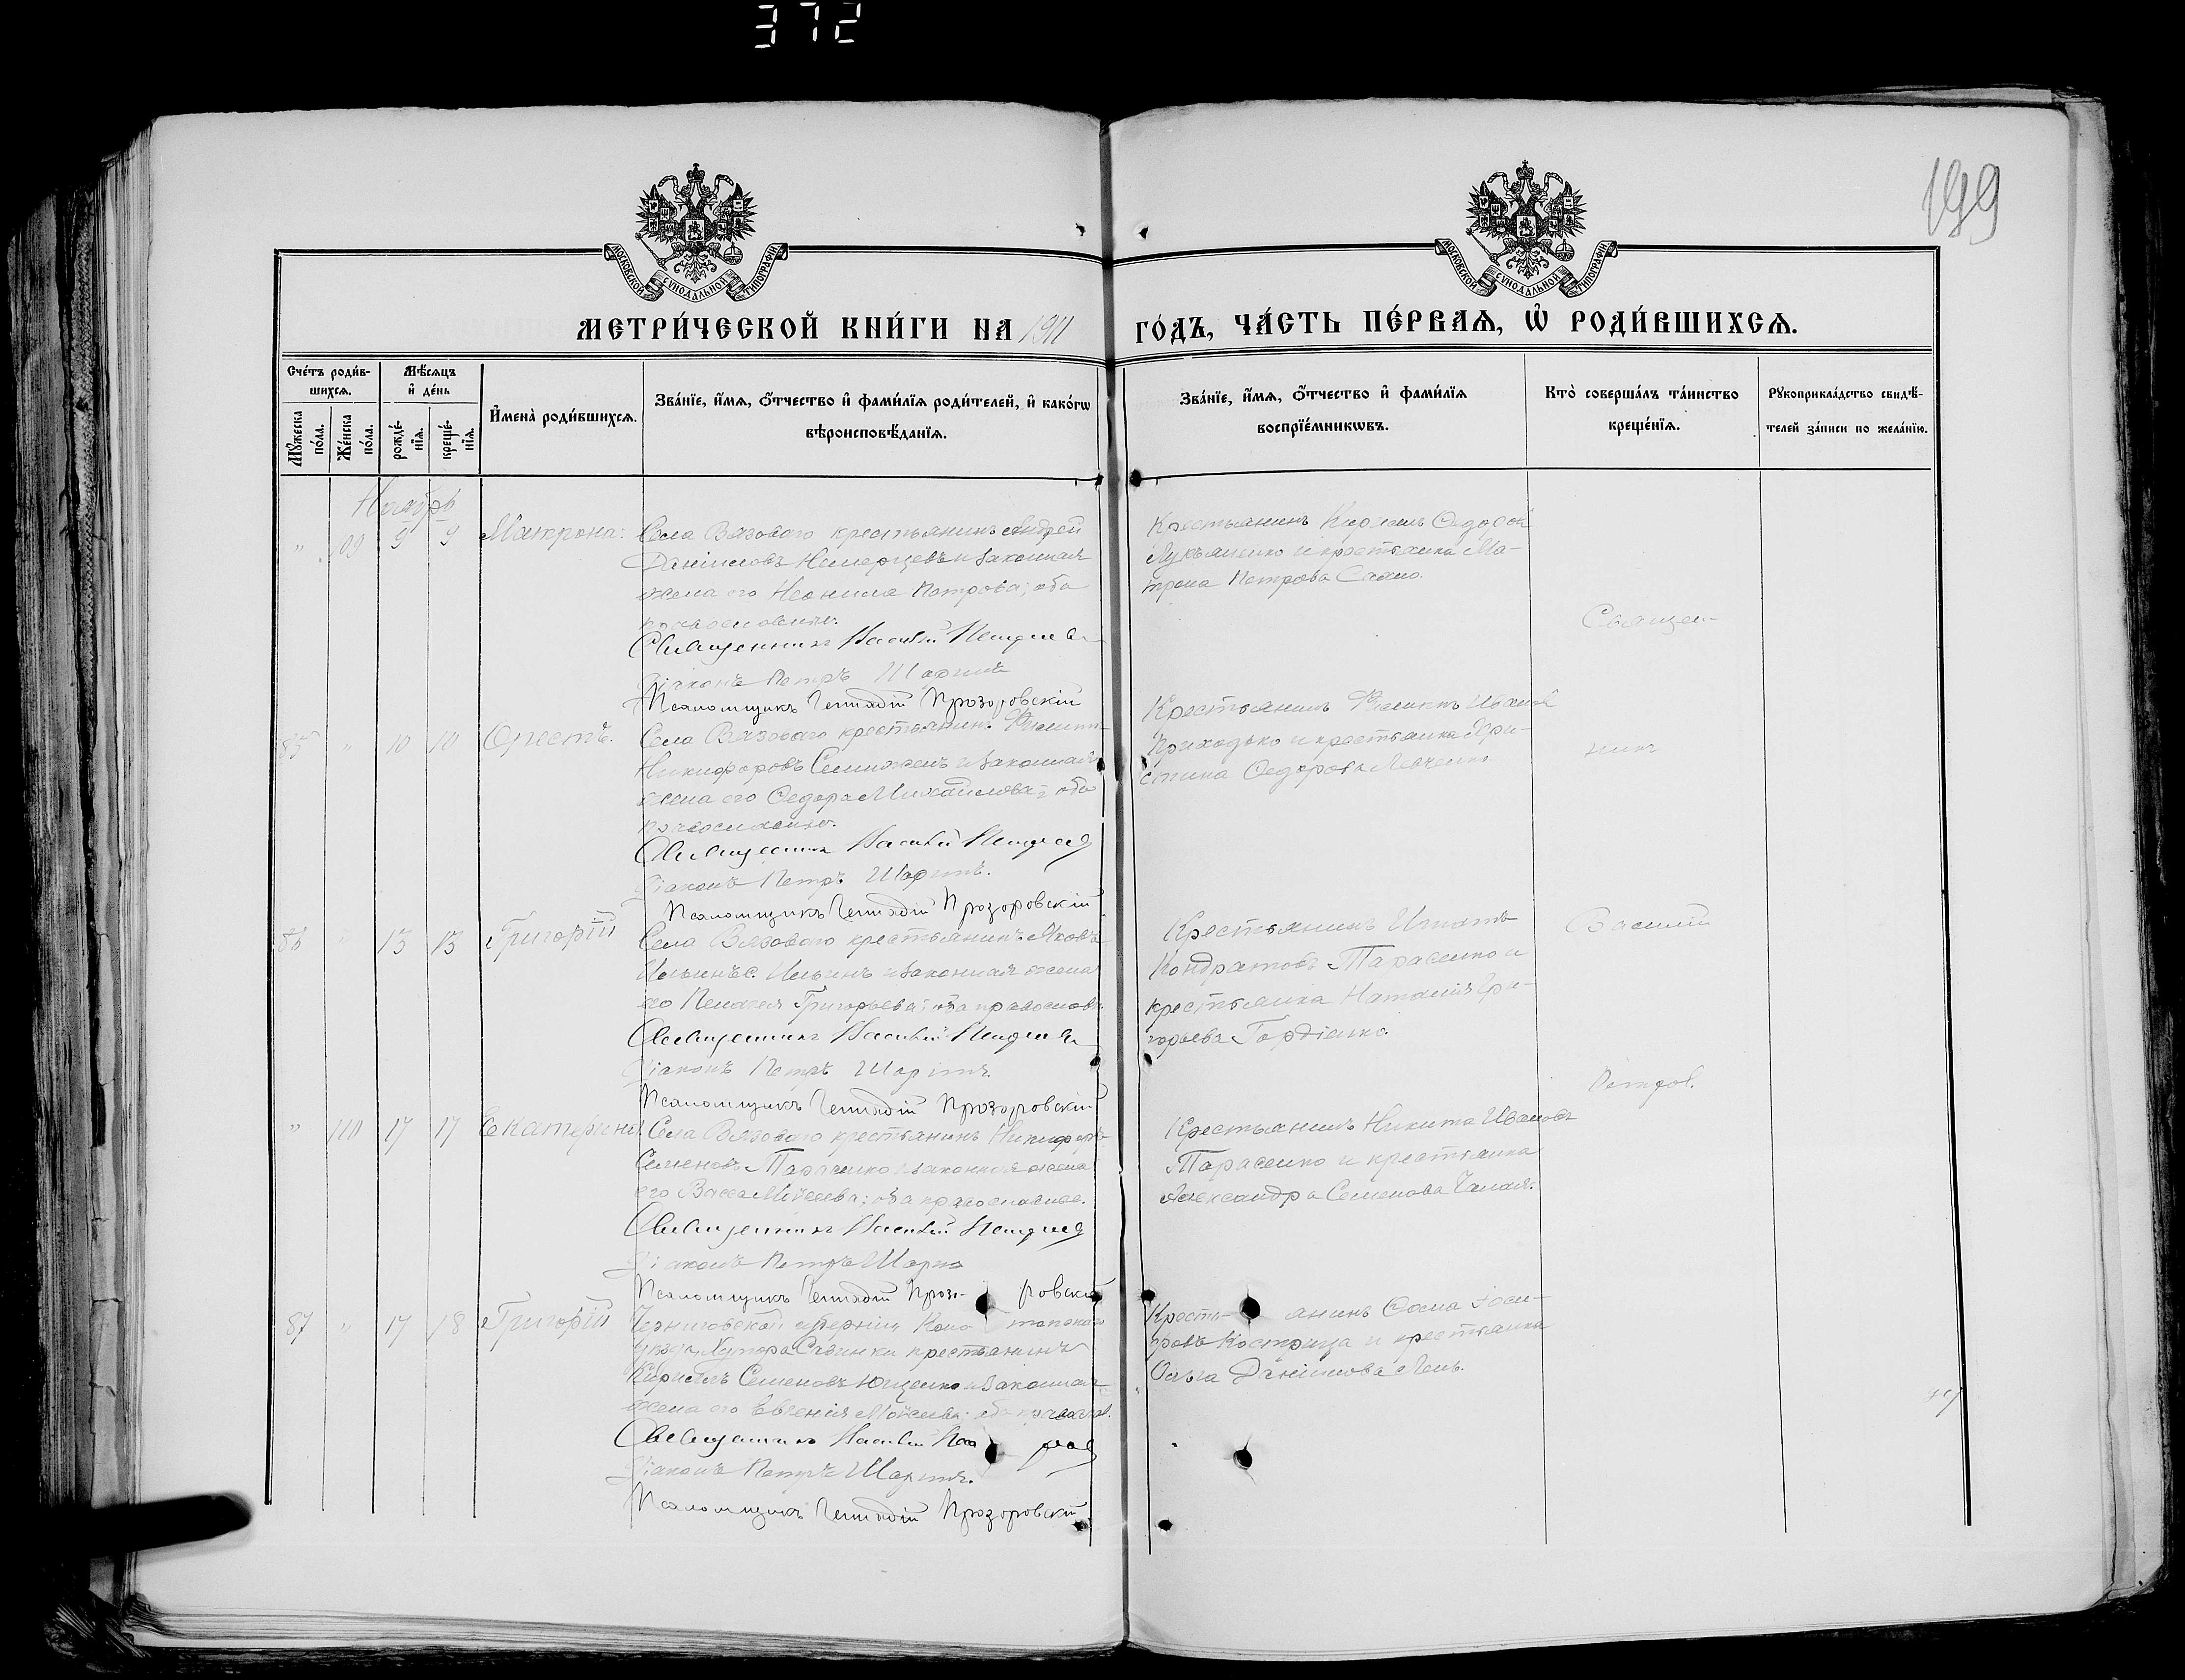 372
199
МОСКОВСКОЙ СУНОДАЛЬНОЙ ТИПОГРАФІИ
МОСКОВСКОЙ СУНОДАЛЬНОЙ ТИПОГРАФІИ
МЕТРИ́ЧЕСКОЙ КНИ́ГИ НА 1911 ГО́ДЪ, ЧА́СТЬ ПЕ́РВАѦ, Ѡ҆ РОДИ́ВШИХСѦ.
Сче́тъ роди́в-
шихсѧ.
Мѣ́сѧцъ
и҆ де́нь
Мꙋ́жеска
по́ла.
Же́нска
по́ла.
рожде́-
нїѧ.
креще́-
нїѧ.
И҆мена̀ роди́вшихсѧ.
Зва́нїе, и҆́мѧ, ѻ҆́тчество и҆ фами́лїѧ роди́телей, и҆ како́гѡ
вѣроисповѣ́данїѧ.
Зва́нїе, и҆́мѧ, ѻ҆́тчество и҆ фами́лїѧ
воспрїе́мникѡвъ.
Кто̀ соверша́лъ та́инство
креще́нїѧ.
Рꙋкоприкла́дство свидѣ́-
телей за́писи по жела́нїю.
Ноябрь
" 109 9 9 Матрона:
Села Вязоваго крестьянинъ Андрей
Даніиловъ и законная
жена его Неонила Петрова; оба
православные.
Священникъ Василій
Діаконъ Петръ
Псаломщикъ Геннадій Прозоровскій
Крестьянинъ Кириллъ Ѳедоров
Лукьяненко и крестьянка Ма-
трона Петрова Сахно.
85 " 10 10 Орестъ.
Села Вязоваго крестьянинъ Филипп
Никифоровъ и законная
жена его Ѳедора Михайлова; оба
православные.
Священникъ Василій
Діаконъ Петръ
Псаломщикъ Геннадій Прозоровскій
Крестьянинъ Филиппъ Иванов
Приходько и крестьянка Хри-
стина Ѳедорова Левченко
86 " 13 13 Григорій
Села Вязоваго крестьянинъ Яковъ
Ильинъ и законная жена
его Пелагея Григорьева; оба православн.
Священникъ Василій
Діаконъ Петръ
Псаломщикъ Геннадій Прозоровскій
Крестьянинъ Игнатъ
Кондратовъ Тарасенко и
крестьянка Наталія Гри-
горьева Гордіенко.
" 110 17 17 Екатерина
Села Вязоваго крестьянинъ Никифоръ
Семеновъ Тарасенко и законная жена
его Васса Моисеева; оба православные.
Священникъ Василій
Діаконъ Петръ
Псаломщикъ Геннадій Прозоровскій
Крестьянинъ Никита Ивановъ
Тарасенко и крестьянка
Александра Семенова Чалая.
87 " 17 18 Григорій
Черниговской губерніи Конотопскаго
уѣзда, Хутора Савинки крестьянинъ
Кириллъ Семеновъ Ющенко и законная
жена его Евгенія Моисеева; оба правосл.
Священникъ Василій
Діаконъ Петръ
Псаломщикъ Геннадій Прозоровскій
Крестьянинъ Ѳома Іоси-
фовъ Кострица и крестьянка
Ольга Даніилова Лень.
Священ-
никъ
Василій
Петров.